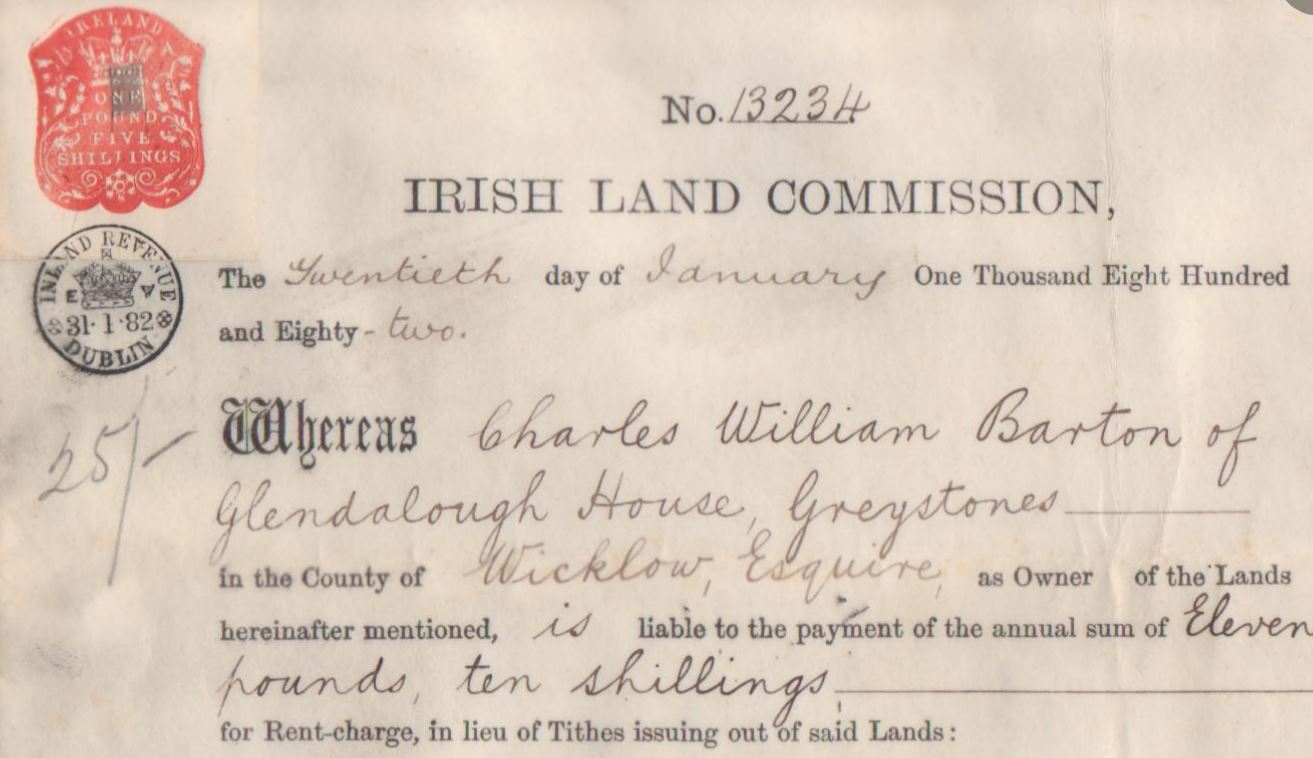 IRELAND
ONE
POUND
FIVE
SHILLINGS
No. 13234
IRISH LAND COMMISSION,
INLAND REVENUE
31·1·82
DUBLIN
The Twentieth day of January One Thousand Eight Hundred
and Eighty-two.
25/-
Whereas Charles William Barton of
Glendalough House, Greystones
in the County of Wicklow, Esquire, as Owner of the Lands
hereinafter mentioned, is liable to the payment of the annual sum of Eleven
pounds, ten shillings
for Rent-charge, in lieu of Tithes issuing out of said Lands: